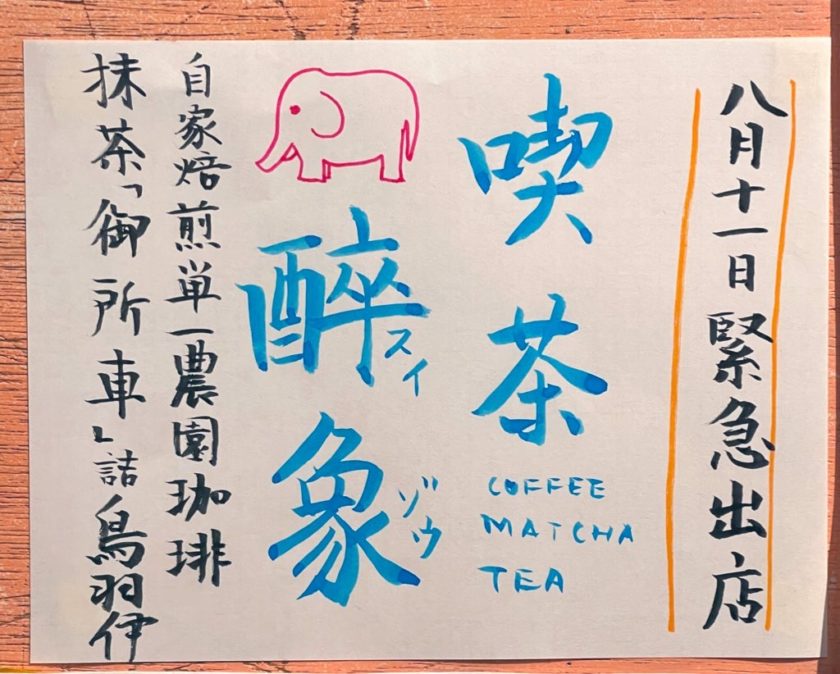 八月十一日緊急出店
喫茶
COFFEE
MATCHA
TEA
醉象
スイ
ゾウ
自家焙煎単一農園珈琲
抹茶「御所車」詰鳥羽伊